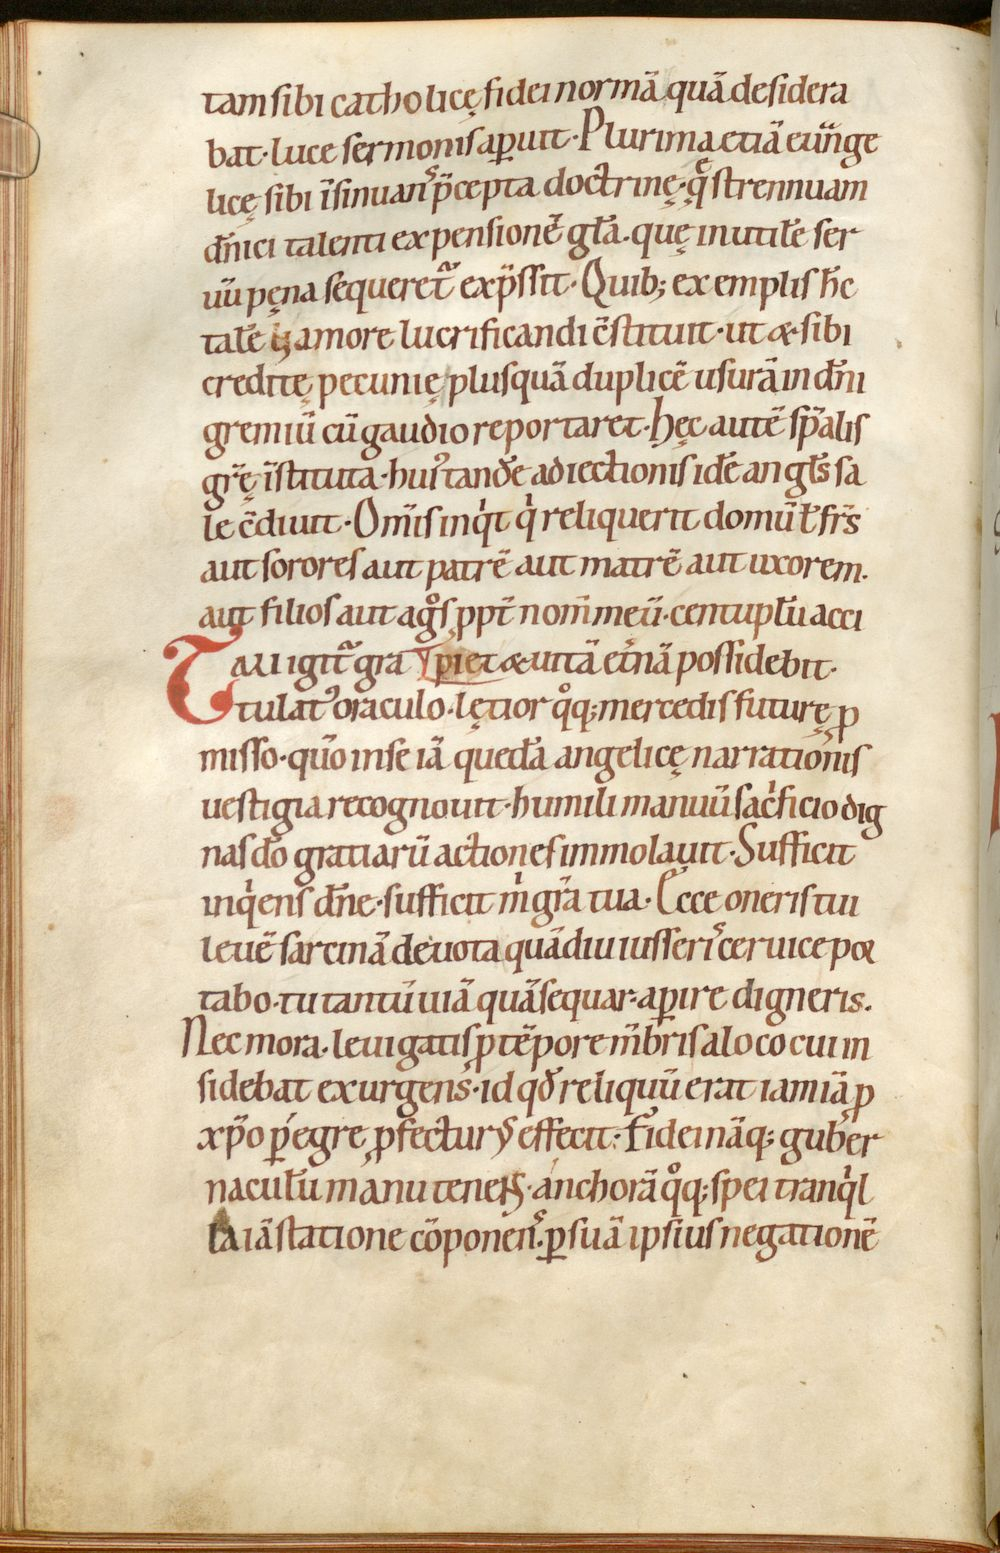 tam sibi catholicę fidei normā quā desidera
bat· luce sermonis aꝑuit· Plurima etiā euñge
licę sibi īsinuans p̃cepta doctrinę· q̨ strennuam
dn̄ici talenti expensionē gła· quę inutilē ser
uū pęna sequeret᷑ exp̃ssit· Quib; exemplis hc̄
talē amore lucrificandi c̄stituit· ut & sibi
creditę pecunię plusquā duplicē usurā in dn̄i
gremiū cū gaudio reportaret· hęc autē sp̄alis
gr̄ę īstituta· hus tandē adiectionis idē angłs sa
le c̄diuit· Om̄is inqͥt qͥ reliquerit domū ł fr̄s
aut sorores aut patrē aut matrē aut uxorem.
aut filios aut agͦs ꝓpt̄ nom̄ meū· centuplū acci
piet & uitā et̄nā possidebit·
Tali igit᷑ gra
tulatꝰ oraculo· lętior qͦq; mercedis futurę ꝓ
misso· quō in se iā quedā angelicę narrationis
uestigia recognouit· humili manuū sacͥficio dig
nas dō gratiarū actiones immolauit· Sufficit
inqͥens dn̄e· sufficit mͥ gr̄a tua· Ecce oneris tui
leuē sarcinā deuota quādiu iusseris ceruice por
tabo· tu tantū uiā quā sequar· aꝑire digneris.
Nec mora· leuigatis ꝓ tēpore mēbris a loco cui in
sidebat exurgens· id qđ reliquū erat iam iā ꝓ
xp̄o ꝑegre ꝓfecturꝰ effecit· Fidei nāq; guber
naculū manu tenens· anchorā qͦq; spei tranqͥl
la iā statione cōponens· ꝑ suā ipsius negationē